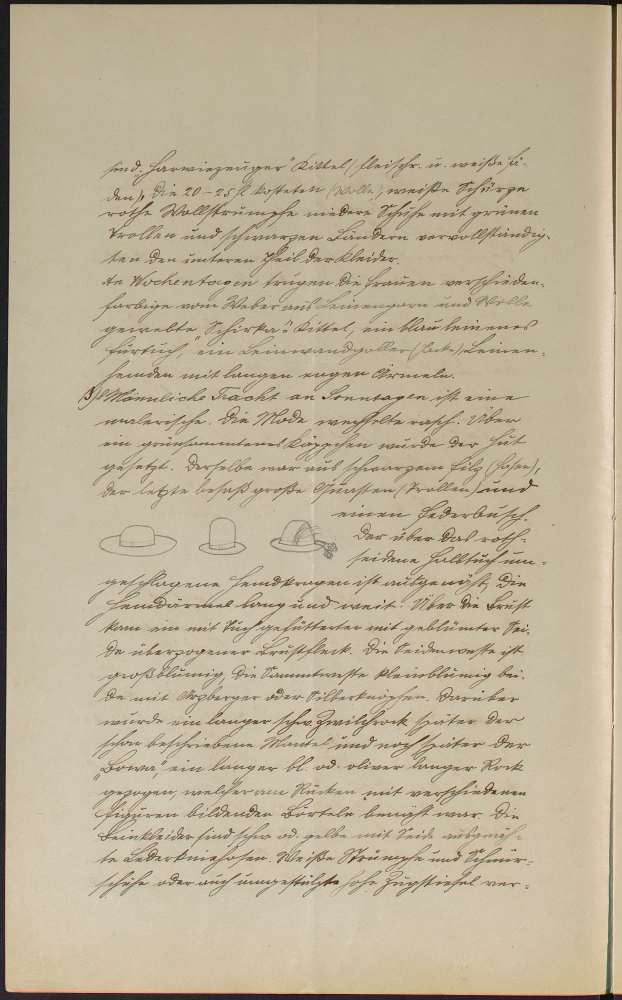 sind, harwiezeuger" Kittel (fleischr. u. weiße Fä-
den), die 20-25 fl kosteten (Wolle), weiße Schürze
rothe Wollstrümpfe niedere Schuhe mit grünen
Trollen und schwarzen Bändern vervollständig-
ten den unteren Theil der Kleider.
An Wochentagen trugen die Frauen verschieden-
farbige vom Weber aus Leinengarn und Wolle
gewebte "Schirka" Kittel, ein blauleinenes
"Fürtuch," ein Leinwandgoller (Leibe) Leinen-
hemden mit langen engen Ärmeln.
Männliche Tracht an Sonntagen ist eine
malerische. Die Mode wechselte rasch. Über
ein grünsammtenes Käppchen wurde der Hut
gesetzt. Derselbe war aus schwarzem Filz (Hasen),
der letzte besaß große Quasten (Trollen) und
einen Federbusch.
Der über das roth-
seidene Halstuch um-
geschlagene Hemdkragen ist ausgenäht, die
Hemdärmel lang und weit. Über die Brust
kam ein mit Tuch gefütterter mit geblümter Sei-
de überzogener Brustfleck. Die Seidenweste ist
großblumig, die Sammtweste kleinblumig bei-
de mit Silberknöpfen. Darüber
wurde ein langer schw. Zwilchrock später der
schon beschriebene Mantel und noch später der
"Bowa", ein langer bl. od. oliver langer Rock
gezogen, welcher am Rücken mit verschiedenen
Figuren bildenden Börteln benäht war. Die
Beinkleider sind schw. od. gelbe mit Seide ausgenäh-
te Lederkniehosen. Weiße Strümpfe und Schnür-
schuhe oder auch umgestülpte hohe Zugstiefel ver-